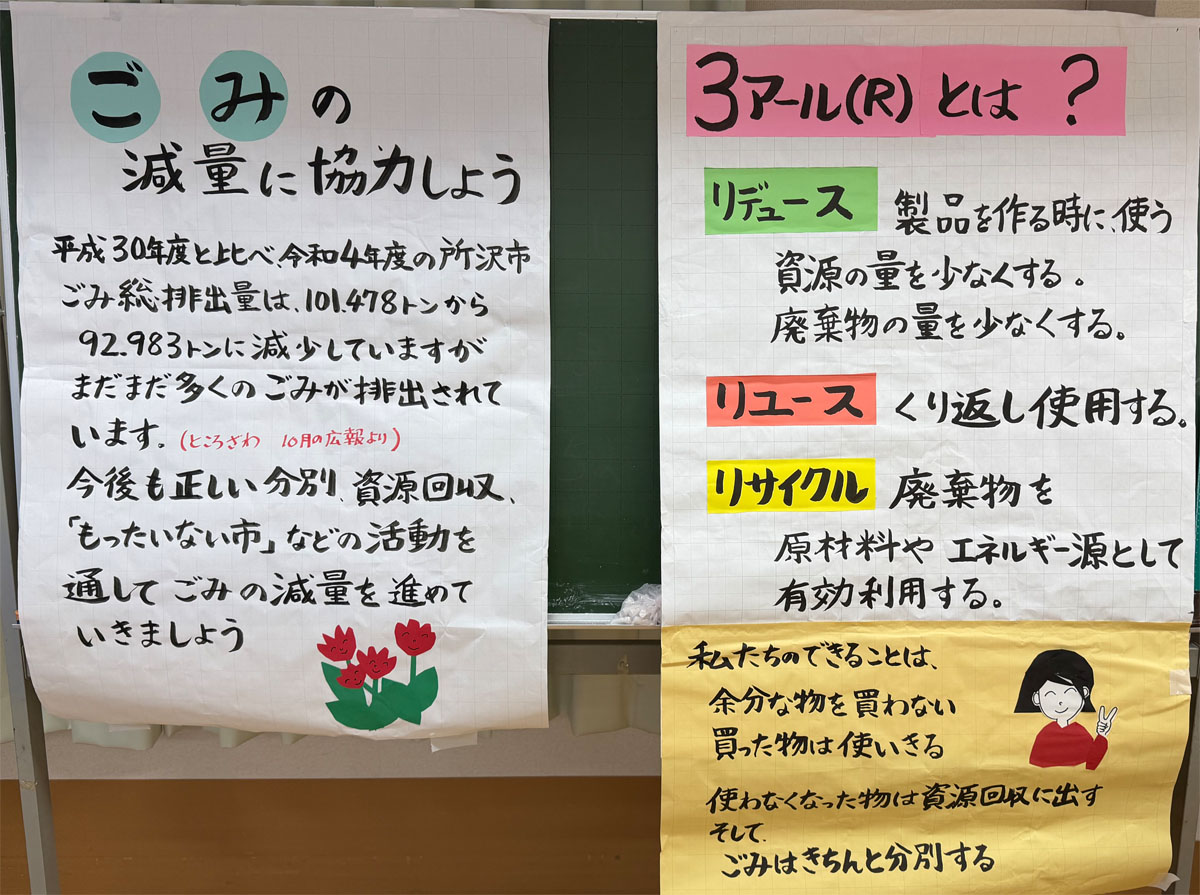 ごみの
減量に協力しよう
平成30年度と比べ、令和4年度の所沢市
ごみ総排出量は、101.478トンから
92.983トンに減少していますが
まだまだ多くのごみが排出されて
います。(ところざわ 10月の広報より)
今後も正しい分別、資源回収、
「もったいない市」などの活動を
通してごみの減量を進めて
いきましょう
3アール(R)とは?
リデュース 製品を作る時に、使う
資源の量を少なくする。
廃棄物の量を少なくする。
リユース くり返し使用する。
リサイクル 廃棄物を
原材料やエネルギー源として
有効利用する。
私たちのできることは、
余分な物を買わない
買った物は使いきる
使わなくなった物は資源回収に出す
そして、
ごみはきちんと分別する